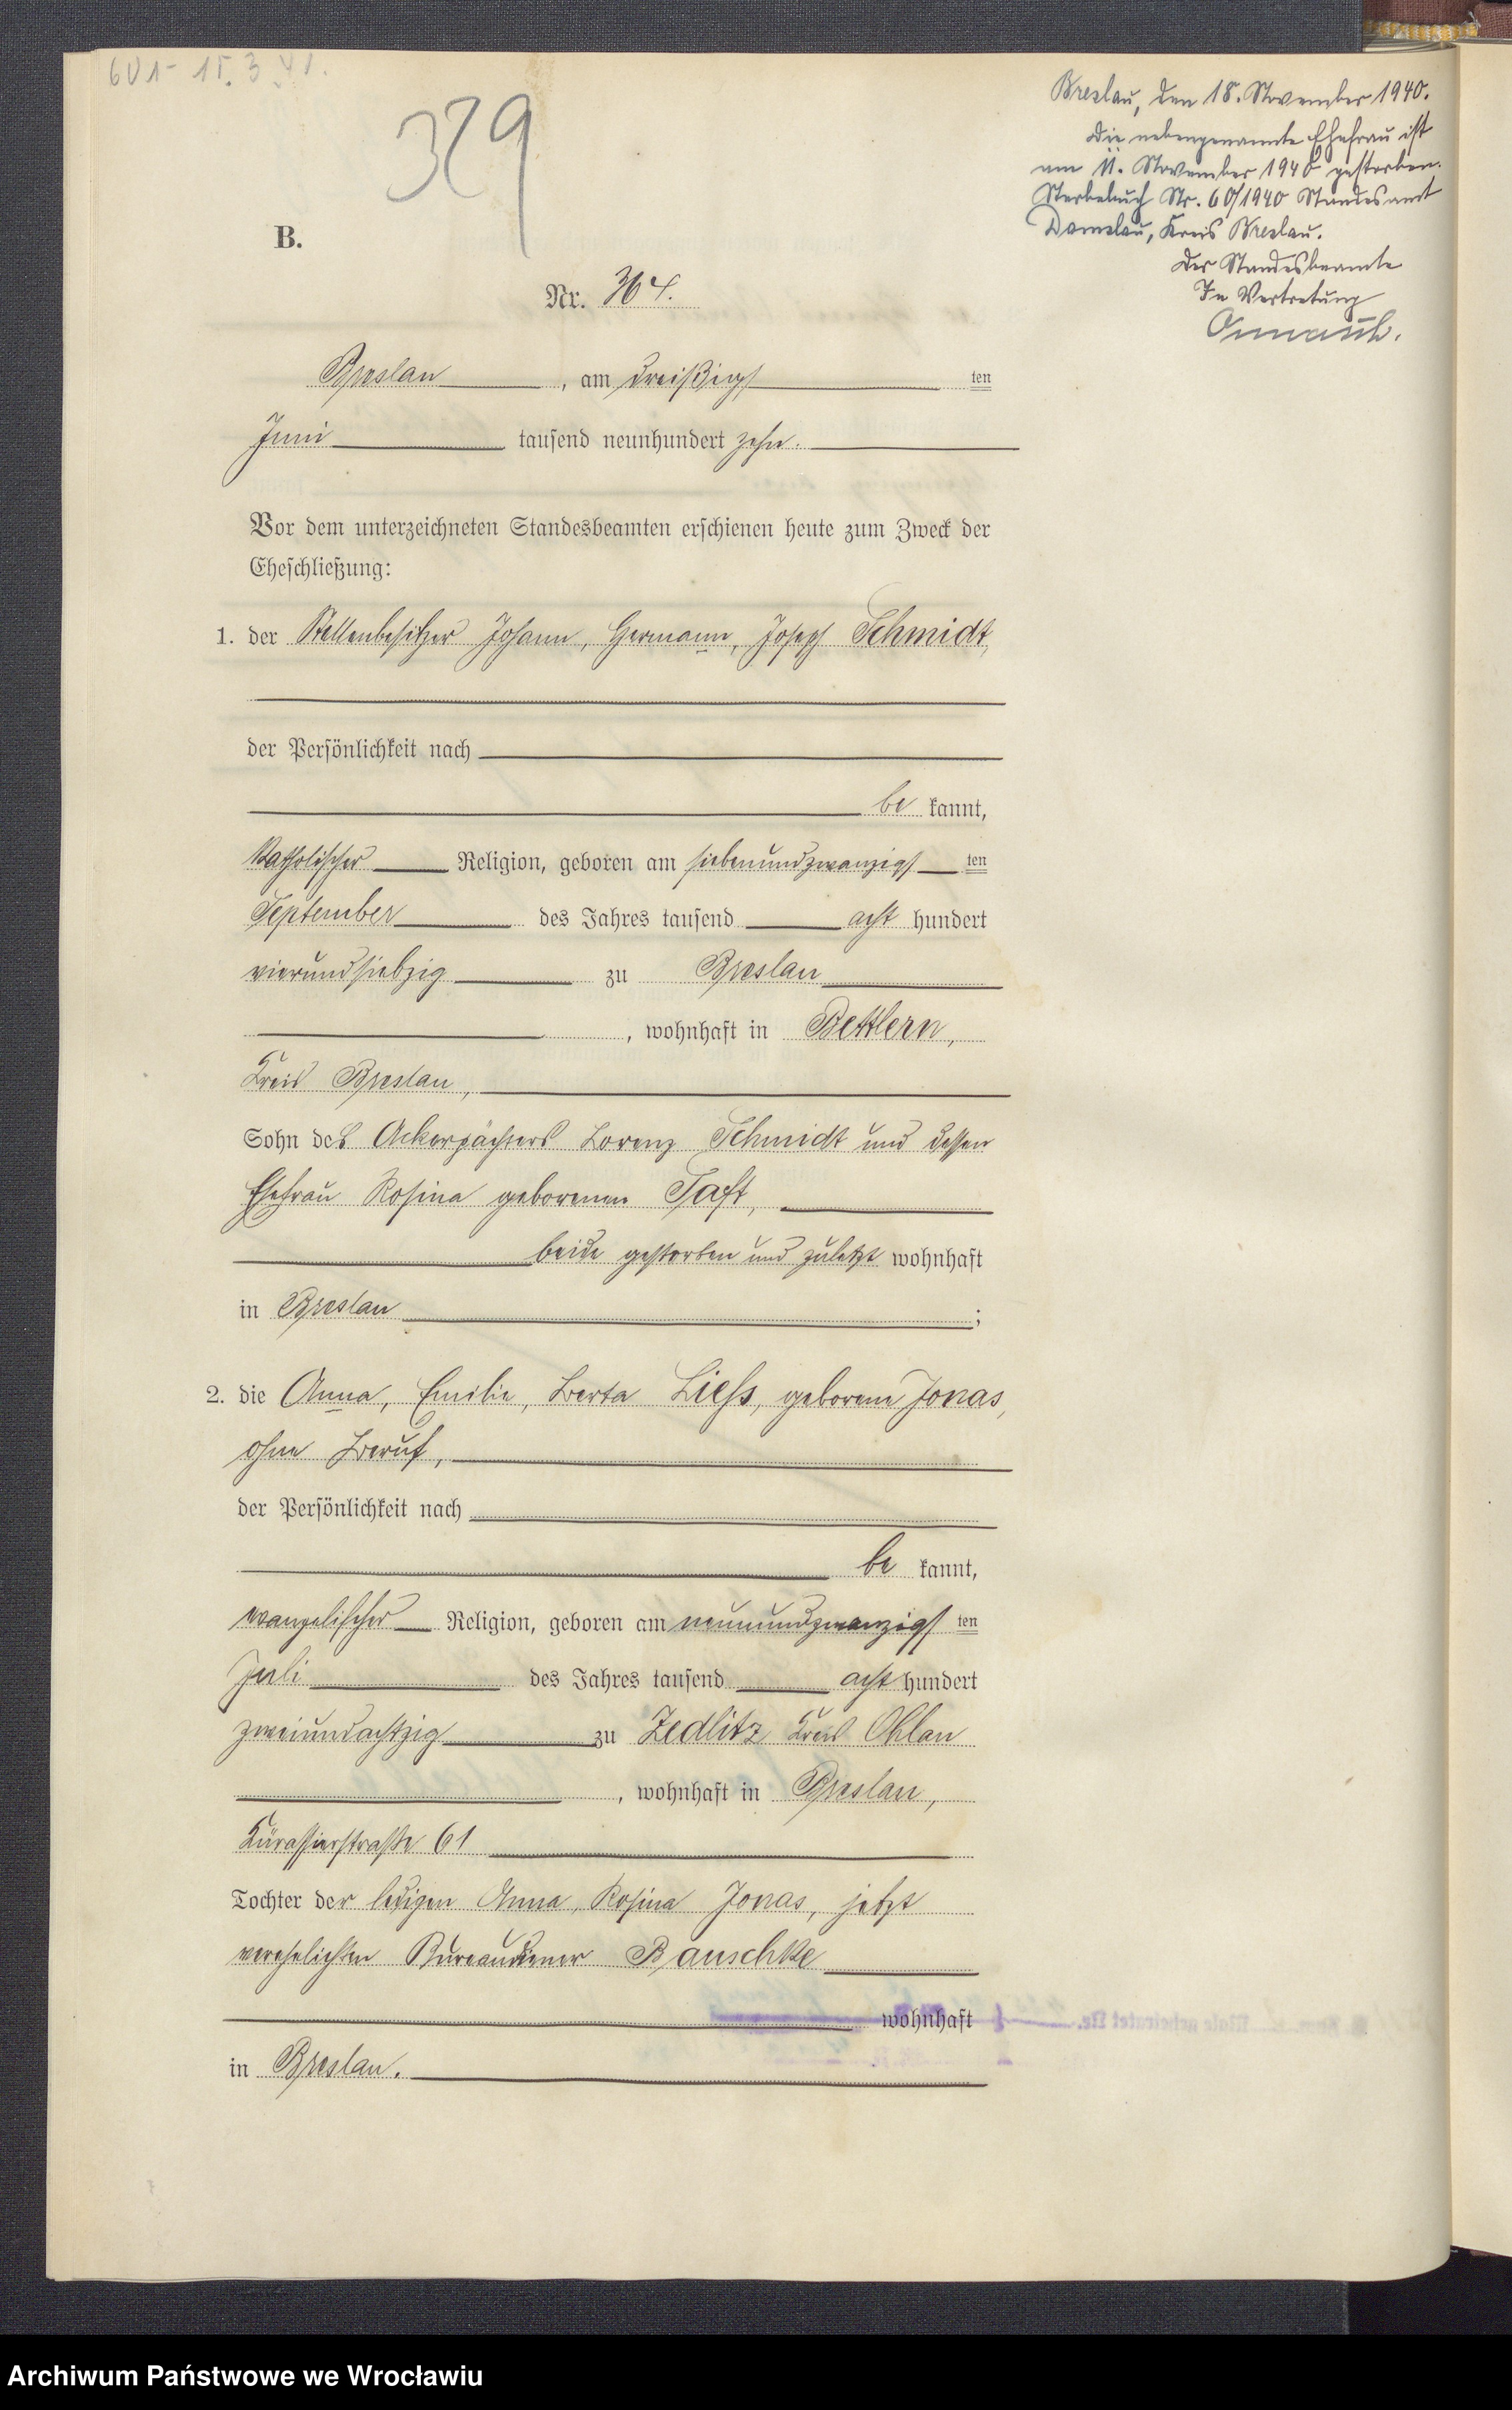 379
Breslau, den 18. November 1940.
Die nebengenannte Ehefrau ist
am 11. November 1940 gestorben.
Sterbebuch Nr. 60/1940 Standesamt
Domslau, Kreis Breslau.
Der Standesbeamte
In Vertretung
B.
Nr. 364.
Breslau, am dreißigsten
Juni tausend neunhundert zehn.
Vor dem unterzeichneten Standesbeamten erschienen heute zum Zweck der
Eheschließung:
1. der Stellenbesitzer Johann, Hermann, Joseph Schmidt,
der Persönlichkeit nach
bekannt,
katholischer Religion, geboren am siebenundzwanzigsten
September des Jahres tausend acht hundert
vierundsiebzig zu Breslau
, wohnhaft in Bettlern,
Kreis Breslau,
Sohn des Ackerpächters Lorenz Schmidt und dessen
Ehefrau Rosina geborenen Taft,
beide gestorben und zuletzt wohnhaft
in Breslau;
2. die Anna, Emilie, Berta Liehs, geborene Jonas,
ohne Beruf,
der Persönlichkeit nach
bekannt,
evangelischer Religion, geboren am neunundzwanzigsten
Juli des Jahres tausend acht hundert
zweiundachtzig zu Zedlitz Kreis Ohlau
, wohnhaft in Breslau,
Kürassierstraße 61
Tochter der ledigen Anna, Rosina Jonas, jetzt
verehelichten Bureaudiener Bauschke
wohnhaft
in Breslau.
Archiwum Państwowe we Wrocławiu